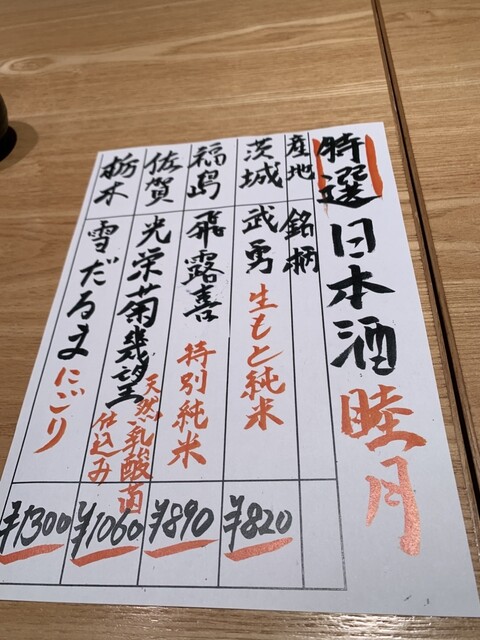 特選日本酒 睦月
産地 銘柄
茨城 武勇 生もと純米 ¥820
福島 飛露喜 特別純米 ¥890
佐賀 光栄菊幾望 天然乳酸菌仕込み ¥1060
栃木 雪だるま にごり ¥1300